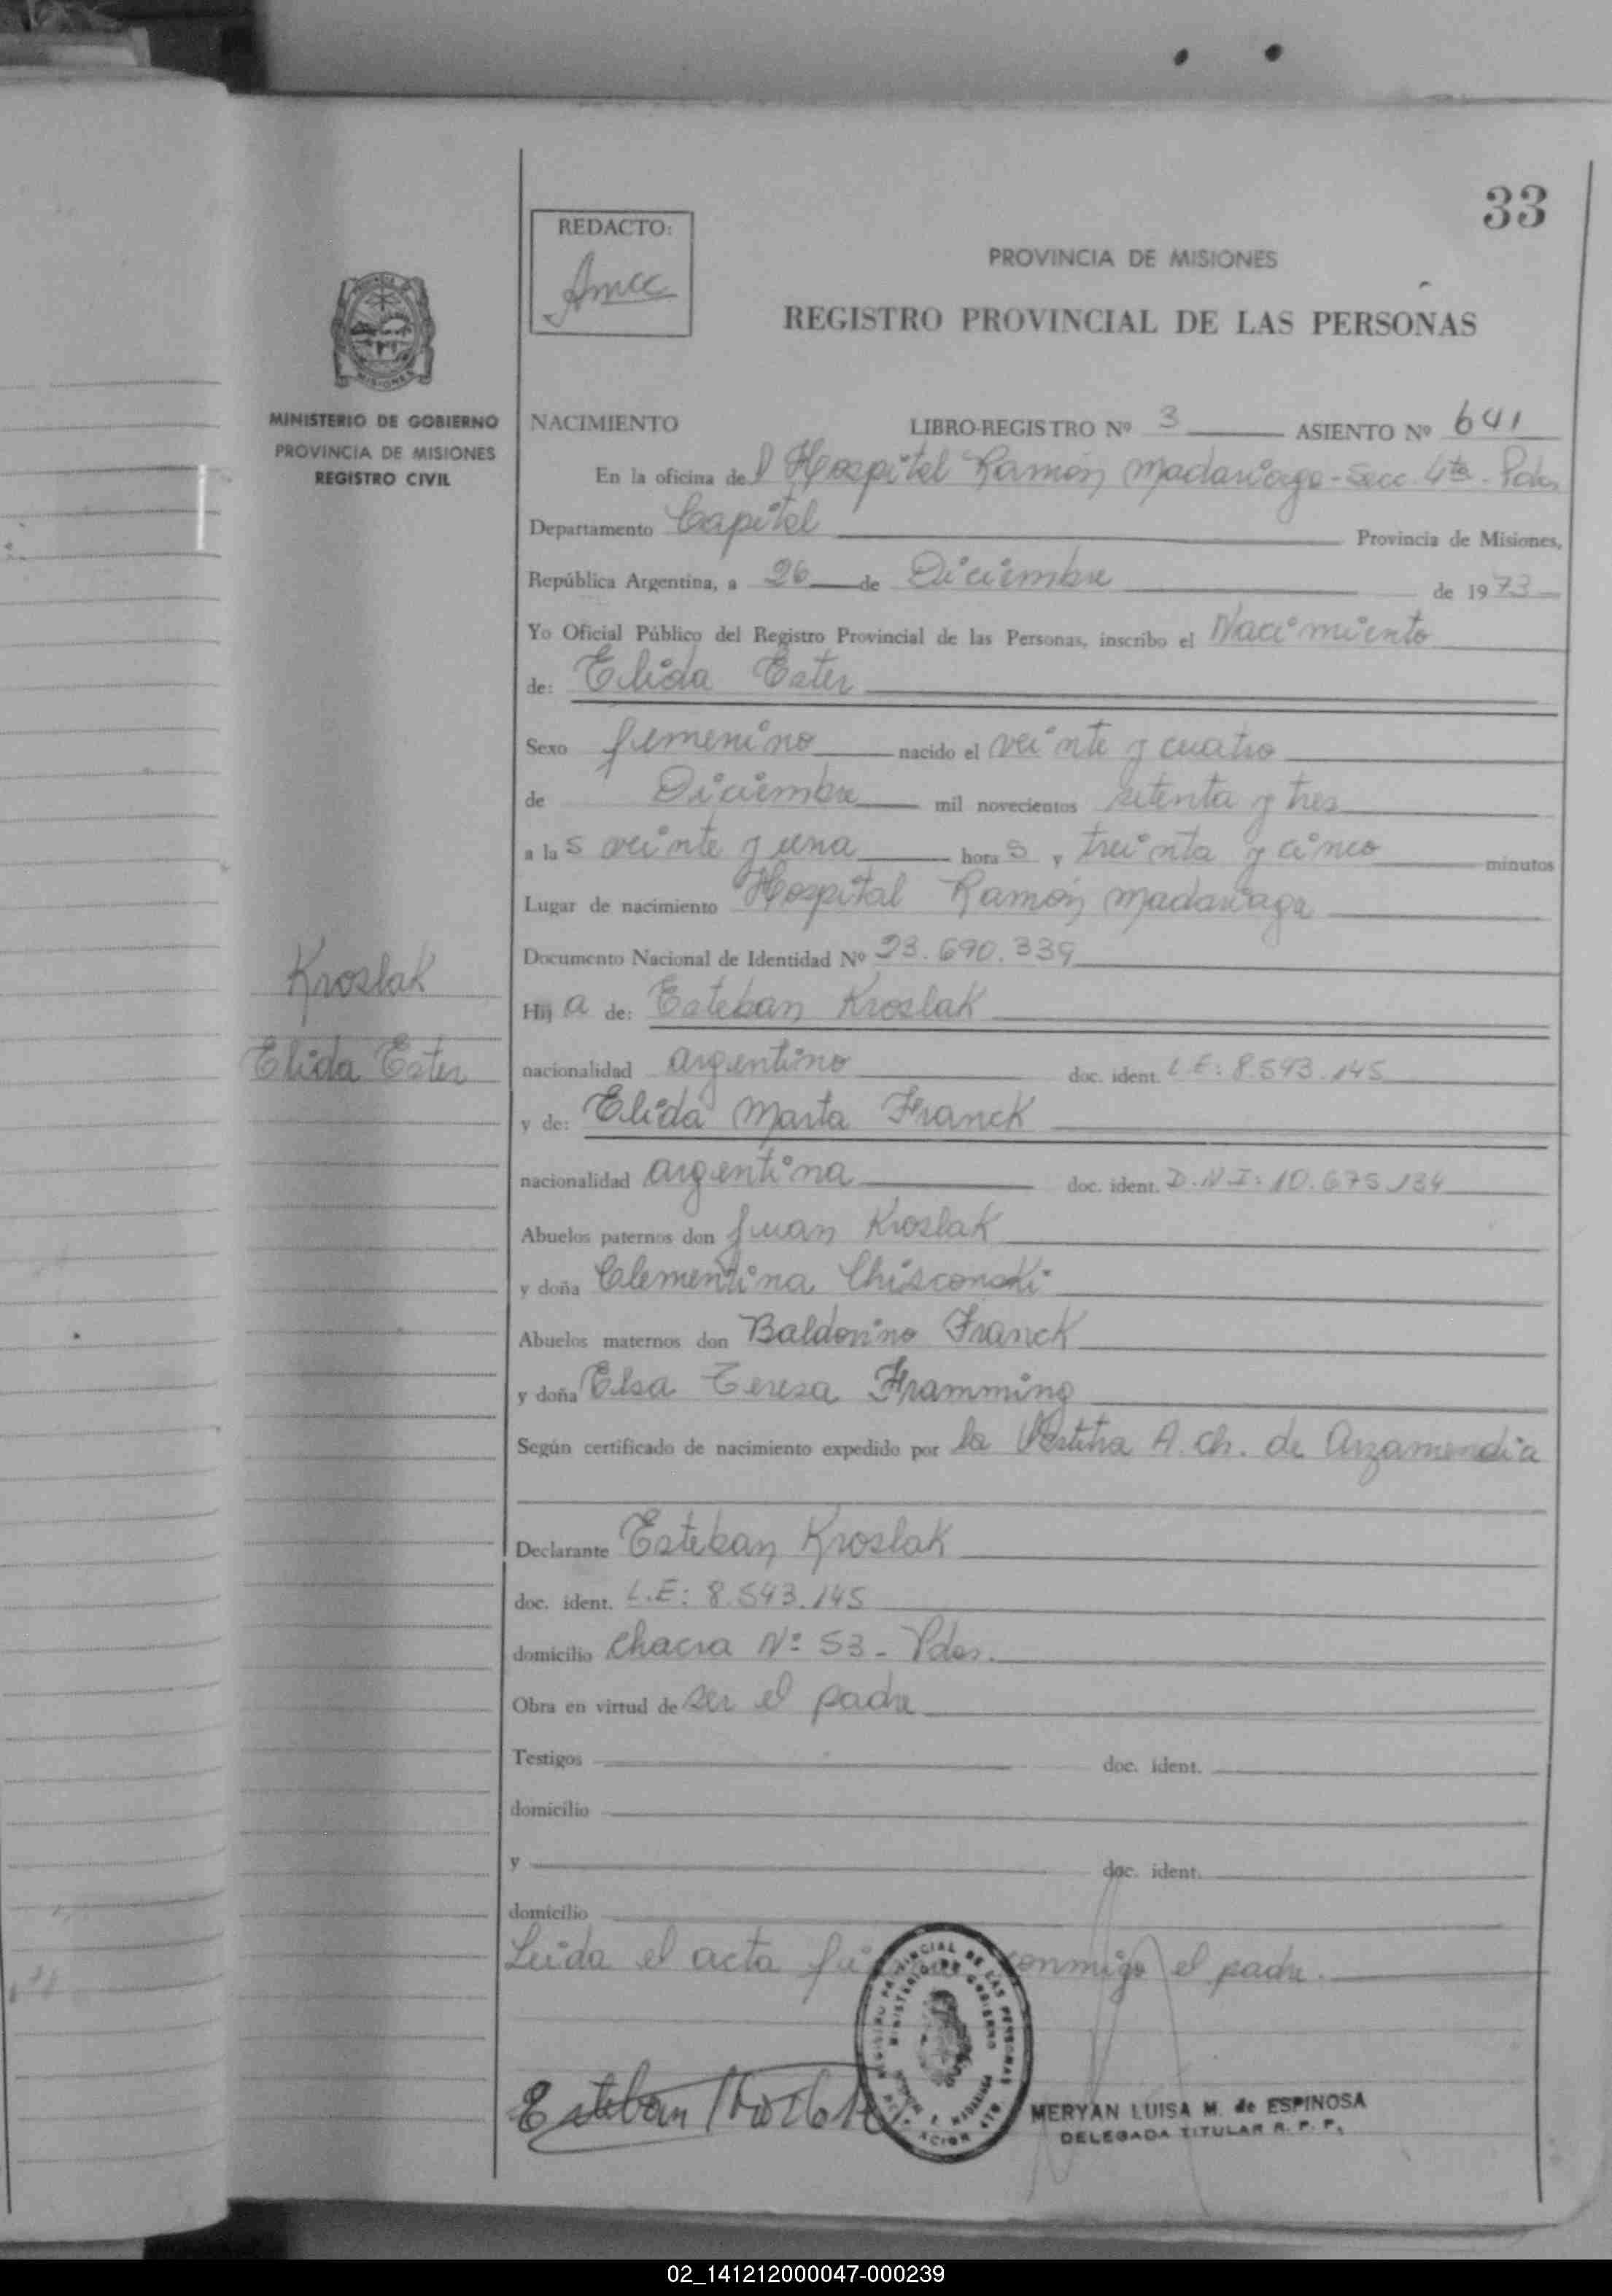 33
REDACTO:
Amcc
PROVINCIA DE MISIONES
REGISTRO PROVINCIAL DE LAS PERSONAS
MISIONES
MINISTERIO DE GOBIERNO
PROVINCIA DE MISIONES
REGISTRO CIVIL
NACIMIENTO LIBRO-REGISTRO Nº 3 ASIENTO Nº 641
En la oficina del Hospital Ramón Madariaga - Secc. 4ta. Pdas
Departamento Capital Provincia de Misiones,
República Argentina, a 26 de Diciembre de 1973
Yo Oficial Público del Registro Provincial de las Personas, inscribo el Nacimiento
de: Elida Ester
Sexo femenino nacido el veinte y cuatro
de Diciembre mil novecientos setenta y tres
a las veinte y una horas y treinta y cinco minutos
Lugar de nacimiento Hospital Ramón Madariaga
Documento Nacional de Identidad Nº 23.690.339
Kroslak
Elida Ester
Hija de: Esteban Kroslak
nacionalidad argentino doc. ident. L.E: 8.543.145
y de: Elida Marta Franck
nacionalidad argentina doc. ident. D.N.I: 10.675.134
Abuelos paternos don Juan Kroslak
y doña Clementina Chisconski
Abuelos maternos don Baldovino Franck
y doña Elsa Teresa Framming
Según certificado de nacimiento expedido por la A. Ch. de Arzamendia
Declarante Esteban Kroslak
doc. ident. L.E: 8.543.145
domicilio Chacra Nº 53 - Pdas.
Obra en virtud de ser el padre
Testigos doc. ident.
domicilio
y doc. ident.
domicilio
Leida el acta conmigo el padre.
REGISTRO PROVINCIAL DE LAS PERSONAS
MINISTERIO DE GOBIERNO
Esteban Kroslak
MERYAN LUISA M. de ESPINOSA
DELEGADA TITULAR R. P. P.
02_141212000047-000239